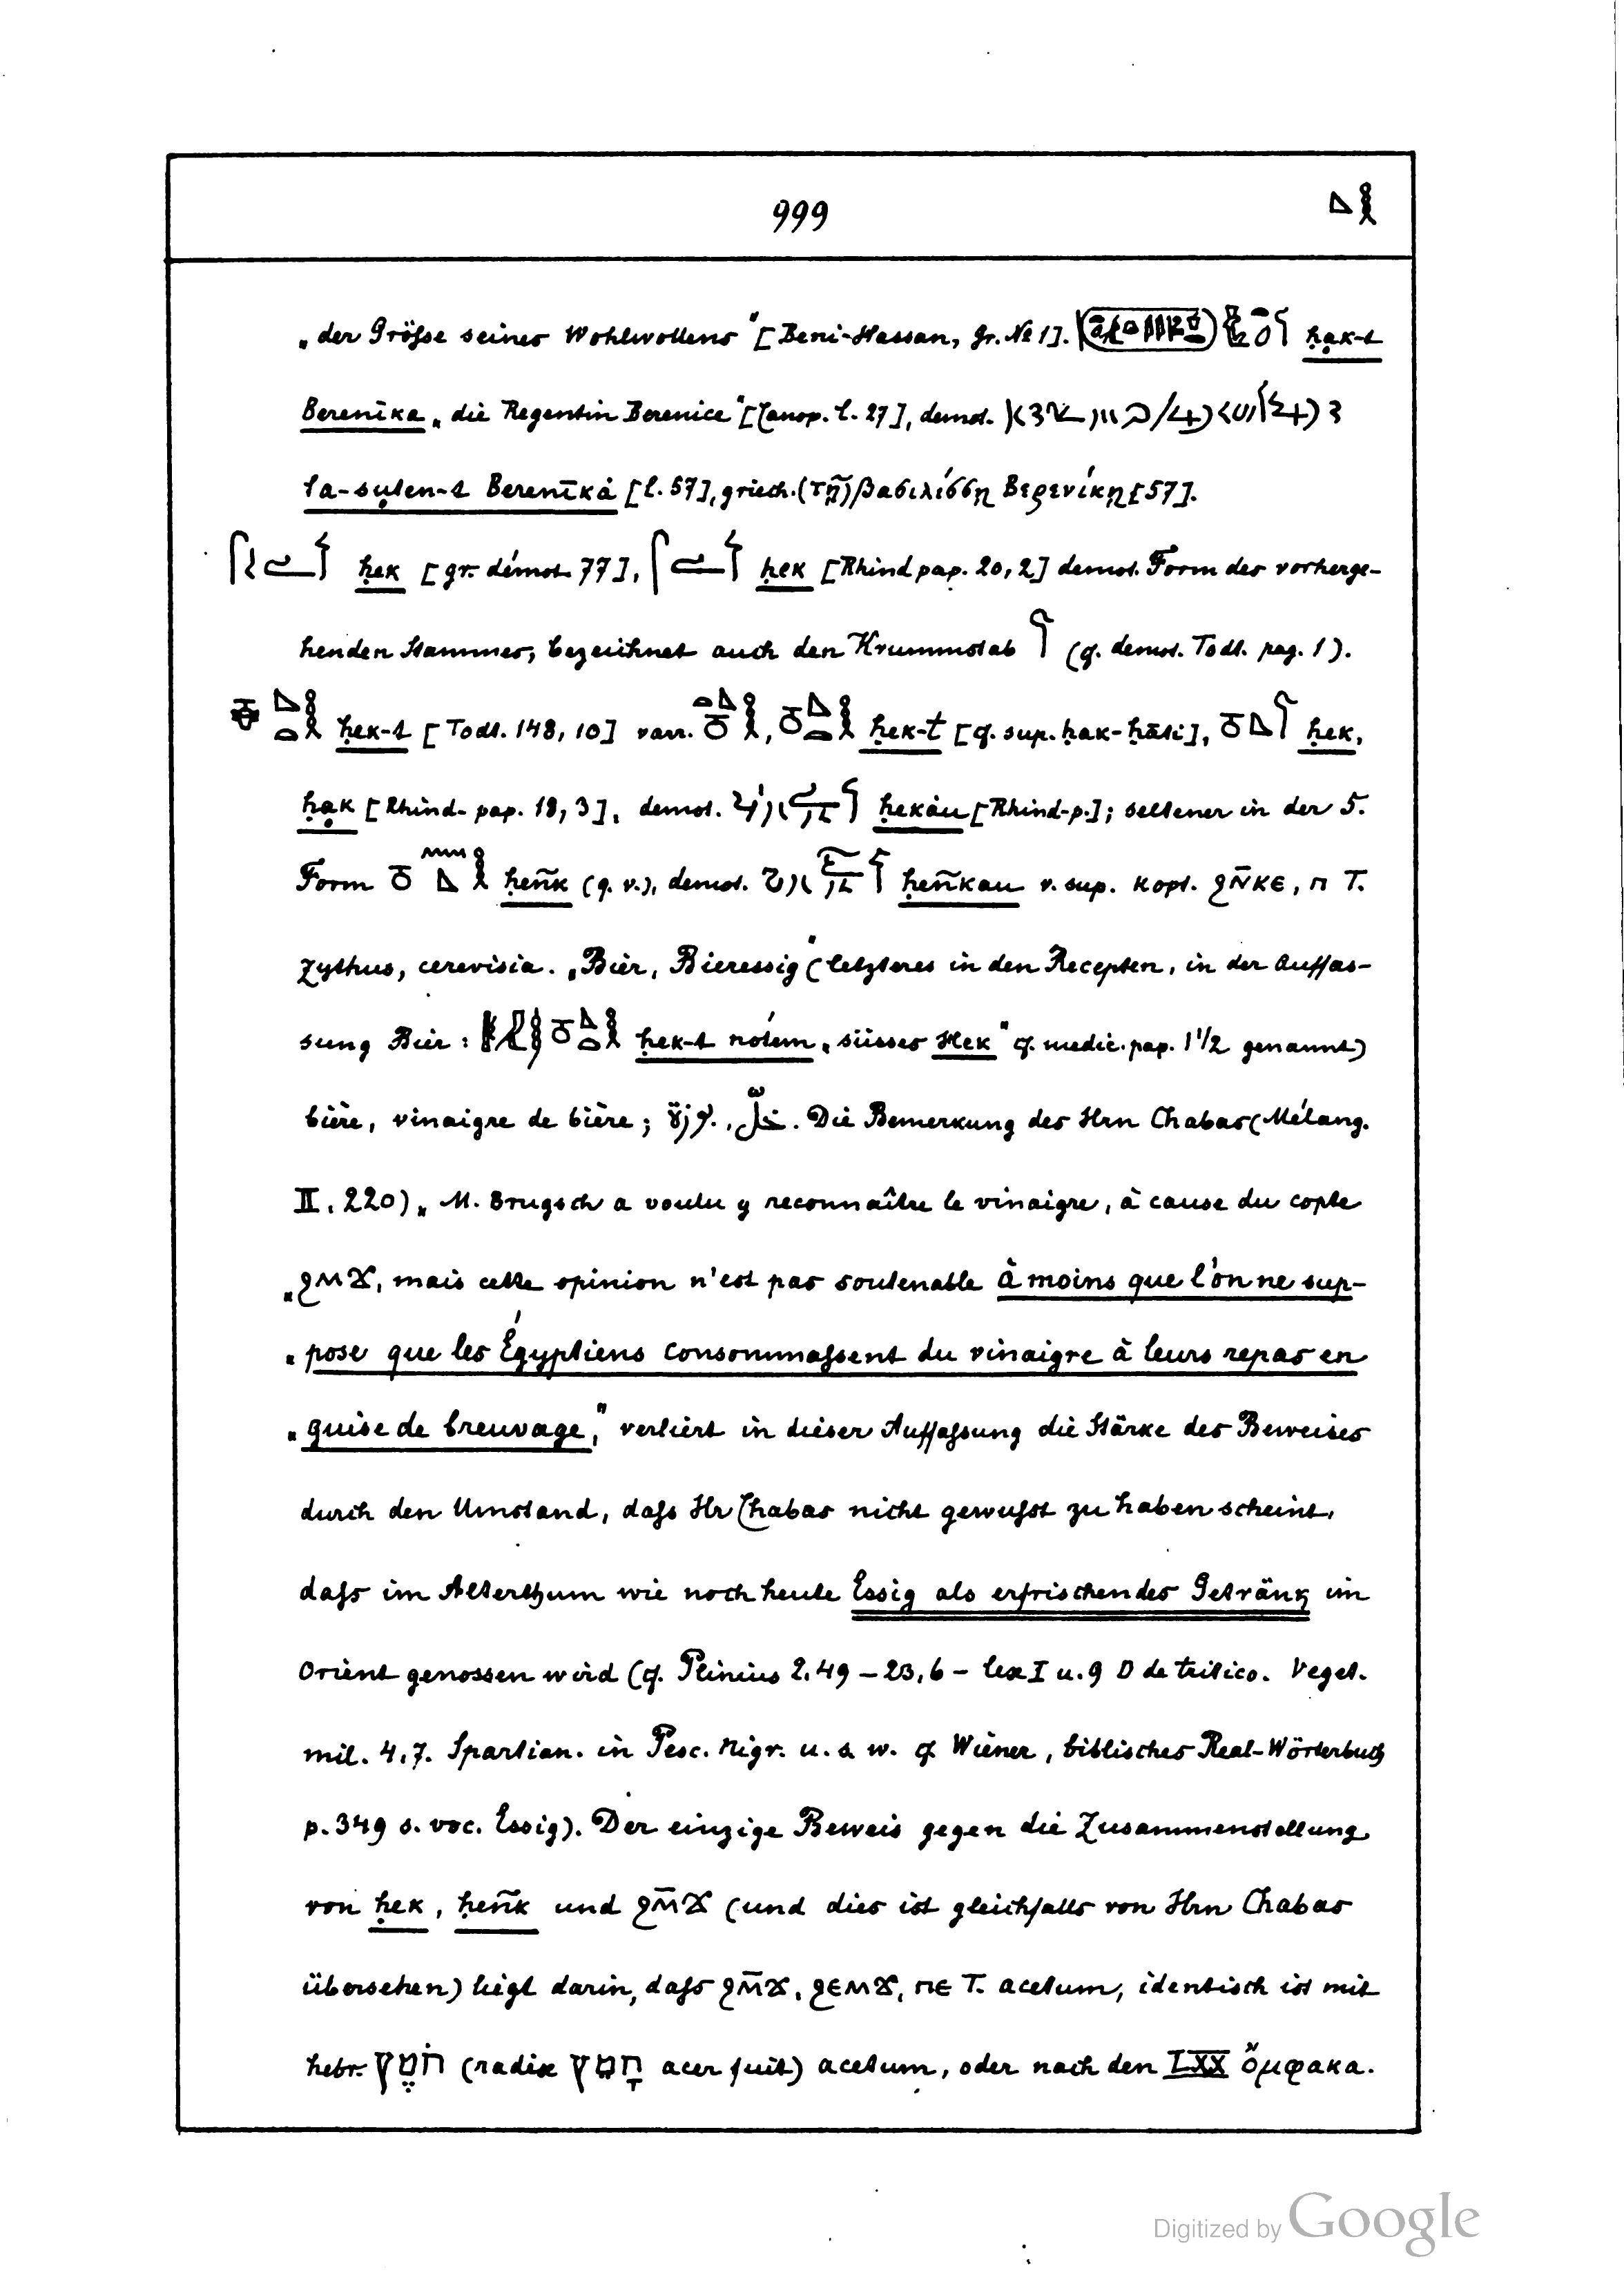 999
„der Größe seines Wohlwollens" [Beni-Hassan, Gr. № 1]. ḥak-t
Berenīka „die Regentin Berenice" [Canop. l. 27], demot.
ta-suten-t Berenīkȧ [l. 57], griech. (τῇ) βασιλίσσῃ Βερενίκῃ [57].
ḥek [gr. démot. 77], ḥek [Rhind pap. 20, 2] demot. Form des vorherge-
henden Stammes, bezeichnet auch den Krummstab (cf. demot. Todt. pag. 1).
ḥek-t [Todt. 148, 10] varr. , ḥek-t [cf. sup. ḥak-ḥāti], ḥek,
ḥak [Rhind-pap. 18, 3], demot. ḥekȧu [Rhind-p.]; seltener in der 5.
Form ḥeñk (q. v.), demot. ḥeñkau v. sup. kopt. ϩⲛ̄ⲕⲉ, ⲡ T.
zythus, cerevisia. „Bier, Bieressig" (letzteres in den Recepten, in der Auffas-
sung Bier: ḥek-t nótem „süsses Hek" cf. medic. pap. 1½ genannt)
bière, vinaigre de bière; خلّ. Die Bemerkung des Hrn Chabas (Mélang.
II, 220) „M. Brugsch a voulu y reconnaître le vinaigre, à cause du copte
„ϩⲙϫ, mais cette opinion n'est pas soutenable à moins que l'on ne sup-
„pose que les Égyptiens consommassent du vinaigre à leurs repas en
„guise de breuvage," verliert in dieser Auffassung die Stärke des Beweises
durch den Umstand, daſs Hr Chabas nicht gewuſst zu haben scheint,
daſs im Alterthum wie noch heute Essig als erfrischendes Getränk im
Orient genossen wird (cf. Plinius 2,49 – 23,6 – lex I u. 9 D de tritico. Veget.
mil. 4,7. Spartian. in Pesc. Nigr. u. s w. cf Wiener, biblisches Real-Wörterbuch
p. 349 s. voc. Essig). Der einzige Beweis gegen die Zusammenstellung
von ḥek, ḥeñk und ϩⲙ̄ϫ (und dies ist gleichfalls von Hrn Chabas
übersehen) liegt darin, daſs ϩⲙ̄ϫ, ϩⲉⲙϫ, ⲡⲉ T. acetum, identisch ist mit
hebr. חֹמֶץ (radix חָמֵץ acer fuit) acetum, oder nach den LXX ὄμφακα.
Digitized by Google